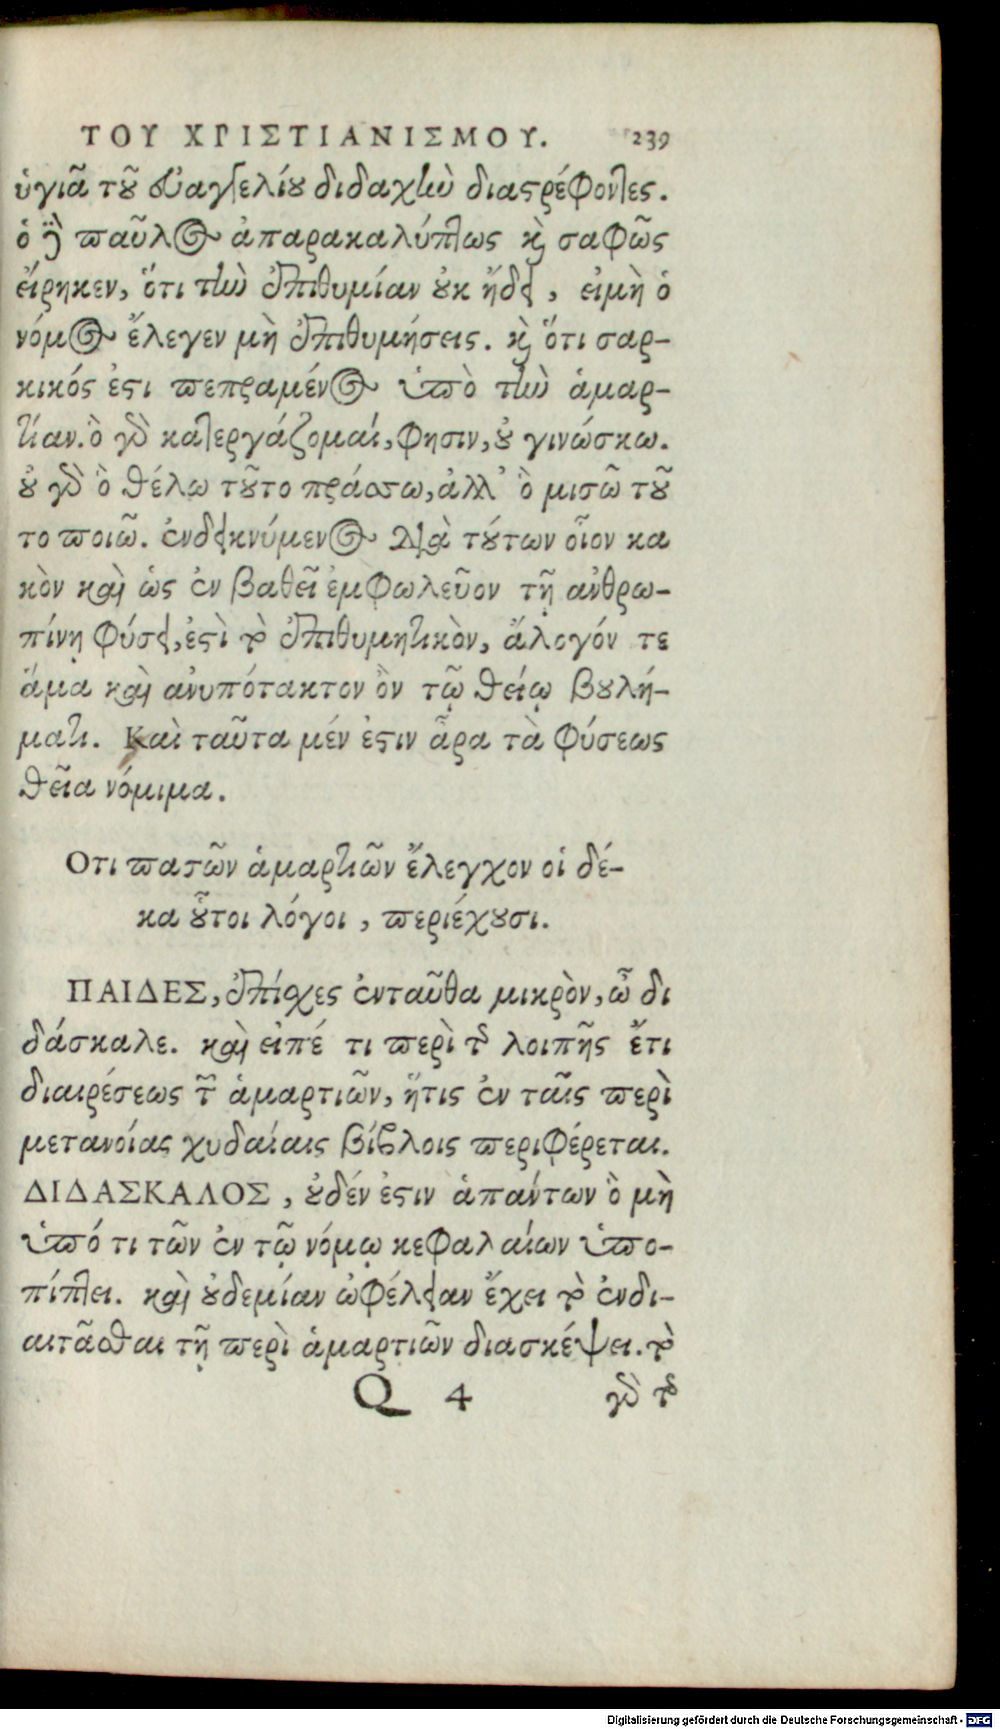 ΤΟΥ ΧΡΙΣΤΙΑΝΙΣΜΟΥ. 239
ὑγιᾶ τοῦ εὐαγγελίου διδαχὴν διαστρέφοντες.
ὁ δὲ παῦλος ἀπαρακαλύπτως καὶ σαφῶς
εἴρηκεν, ὅτι τὴν ἐπιθυμίαν οὐκ ᾔδει, εἰμὴ ὁ
νόμος ἔλεγεν μὴ ἐπιθυμήσεις. καὶ ὅτι σαρ-
κικός ἐστι πεπραμένος ὑπὸ τὴν ἁμαρ-
τίαν. ὃ γὰρ κατεργάζομαι, φησιν, οὐ γινώσκω.
οὐ γὰρ ὃ θέλω τοῦτο πράσσω, ἀλλ' ὃ μισῶ τοῦ
το ποιῶ. ἐνδεικνύμενος διὰ τούτων οἷον κα
κὸν καὶ ὡς ἐν βαθεῖ ἐμφωλεῦον τῇ ἀνθρω-
πίνῃ φύσει, ἐστὶ τὸ ἐπιθυμητικὸν, ἄλογόν τε
ἅμα καὶ ἀνυπότακτον ὂν τῷ θείῳ βουλή-
ματι. Καὶ ταῦτα μέν ἐστιν ἆρα τὰ φύσεως
θεῖα νόμιμα.
Οτι πασῶν ἁμαρτιῶν ἔλεγχον οἱ δέ-
κα οὗτοι λόγοι, περιέχουσι.
ΠΑΙΔΕΣ, ἐπίσχες ἐνταῦθα μικρὸν, ὦ δι
δάσκαλε. καὶ εἰπέ τι περὶ τῆς λοιπῆς ἔτι
διαιρέσεως τῶν ἁμαρτιῶν, ἥτις ἐν ταῖς περὶ
μετανοίας χυδαίαις βίβλοις περιφέρεται.
ΔΙΔΑΣΚΑΛΟΣ, οὐδέν ἐστιν ἁπάντων ὃ μὴ
ὑπό τι τῶν ἐν τῷ νόμῳ κεφαλαίων ὑπο-
πίπτει. καὶ οὐδεμίαν ὠφέλειαν ἔχει τὸ ἐνδι-
αιτᾶσθαι τῇ περὶ ἁμαρτιῶν διασκέψει. τὸ
Q 4 γὰρ τῆς
Digitalisierung gefördert durch die Deutsche Forschungsgemeinschaft - DFG